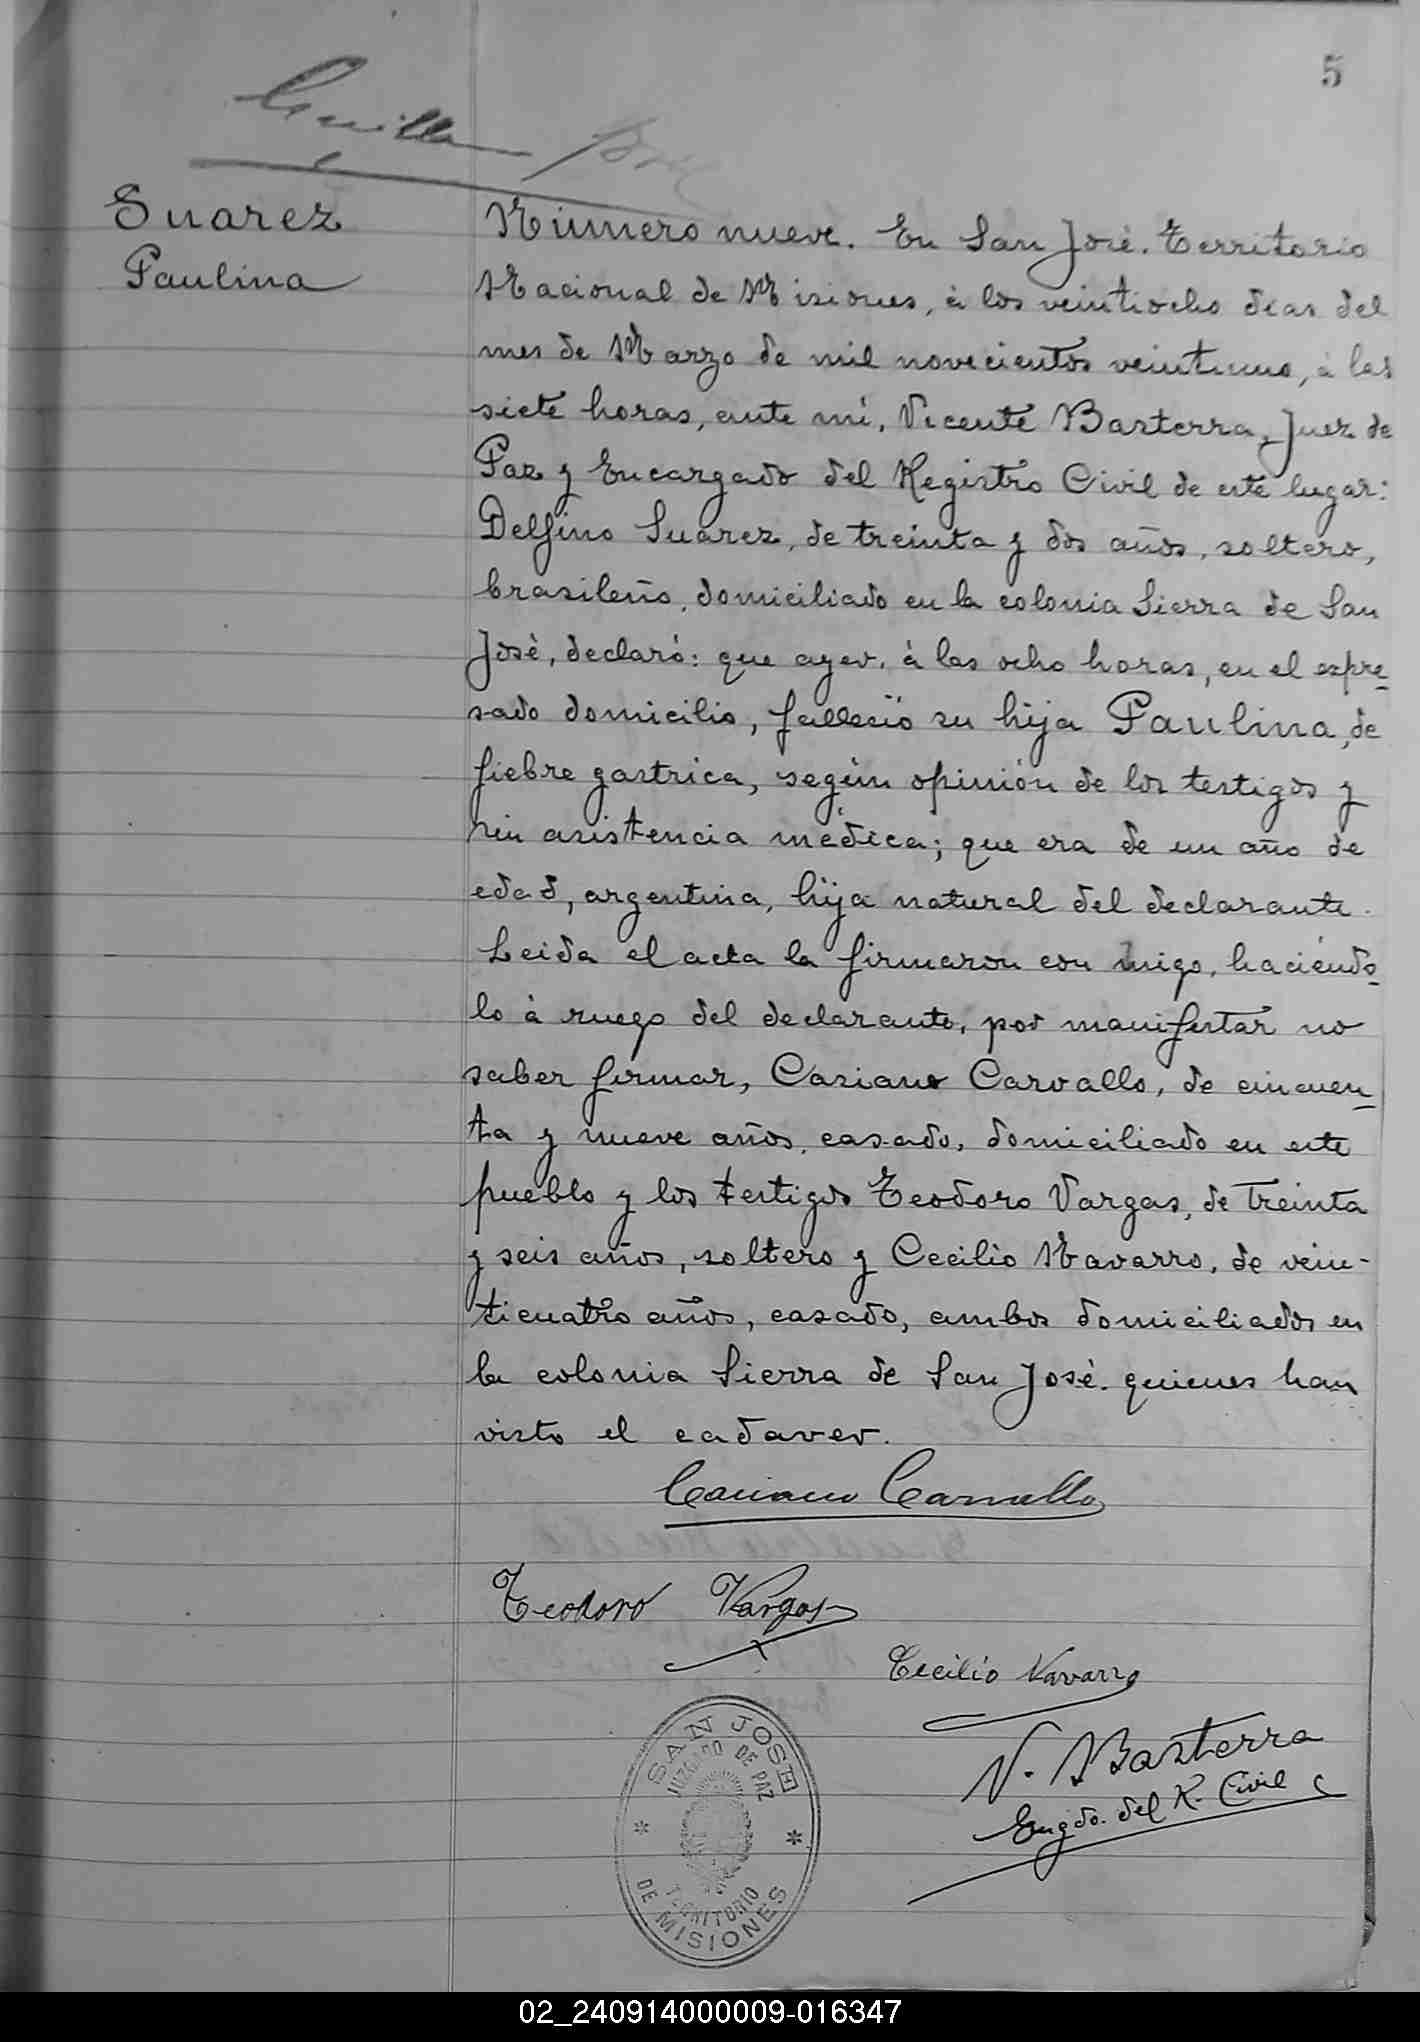 5
Suarez
Paulina
Número nueve. En San José. Territorio
Nacional de Misiones, à los veintiocho dias del
mes de Marzo de mil novecientos veintiuno, à las
siete horas, ante mí, Vicente Basterra, Juez de
Paz y Encargado del Registro Civil de este lugar:
Delfino Suarez, de treinta y dos años, soltero,
brasileño, domiciliado en la colonia Sierra de San
José, declaró: que ayer, à las ocho horas, en el expre-
sado domicilio, falleció su hija Paulina, de
fiebre gastrica, según opinión de los testigos y
sin asistencia médica; que era de un año de
edad, argentina, hija natural del declarante.
Leida el acta la firmaron con migo, haciendo-
lo à ruego del declarante, por manifestar no
saber firmar, Casiano Carvallo, de cincuen-
ta y nueve años, casado, domiciliado en este
pueblo y los testigos Teodoro Vargas, de treinta
y seis años, soltero y Cecilio Navarro, de vein-
ticuatro años, casado, ambos domiciliados en
la colonia Sierra de San José. quienes han
visto el cadaver.
Casiano Carvallo
Teodoro Vargas
Cecilio Navarro
V. Basterra
Engdo. del R. Civil
SAN JOSE
JUZGADO DE PAZ
TERRITORIO
DE MISIONES
02_240914000009-016347